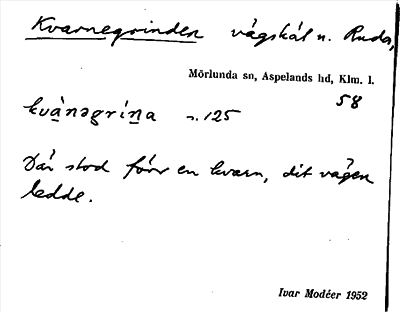 Kvarnegrinden vägskäl n. Ruda,
Mörlunda sn, Aspelands hd, Klm. l.
58
kvá̱nəgríṉa s. 125
Där stod förr en kvarn, dit vägen
ledde.
Ivar Modéer 1952